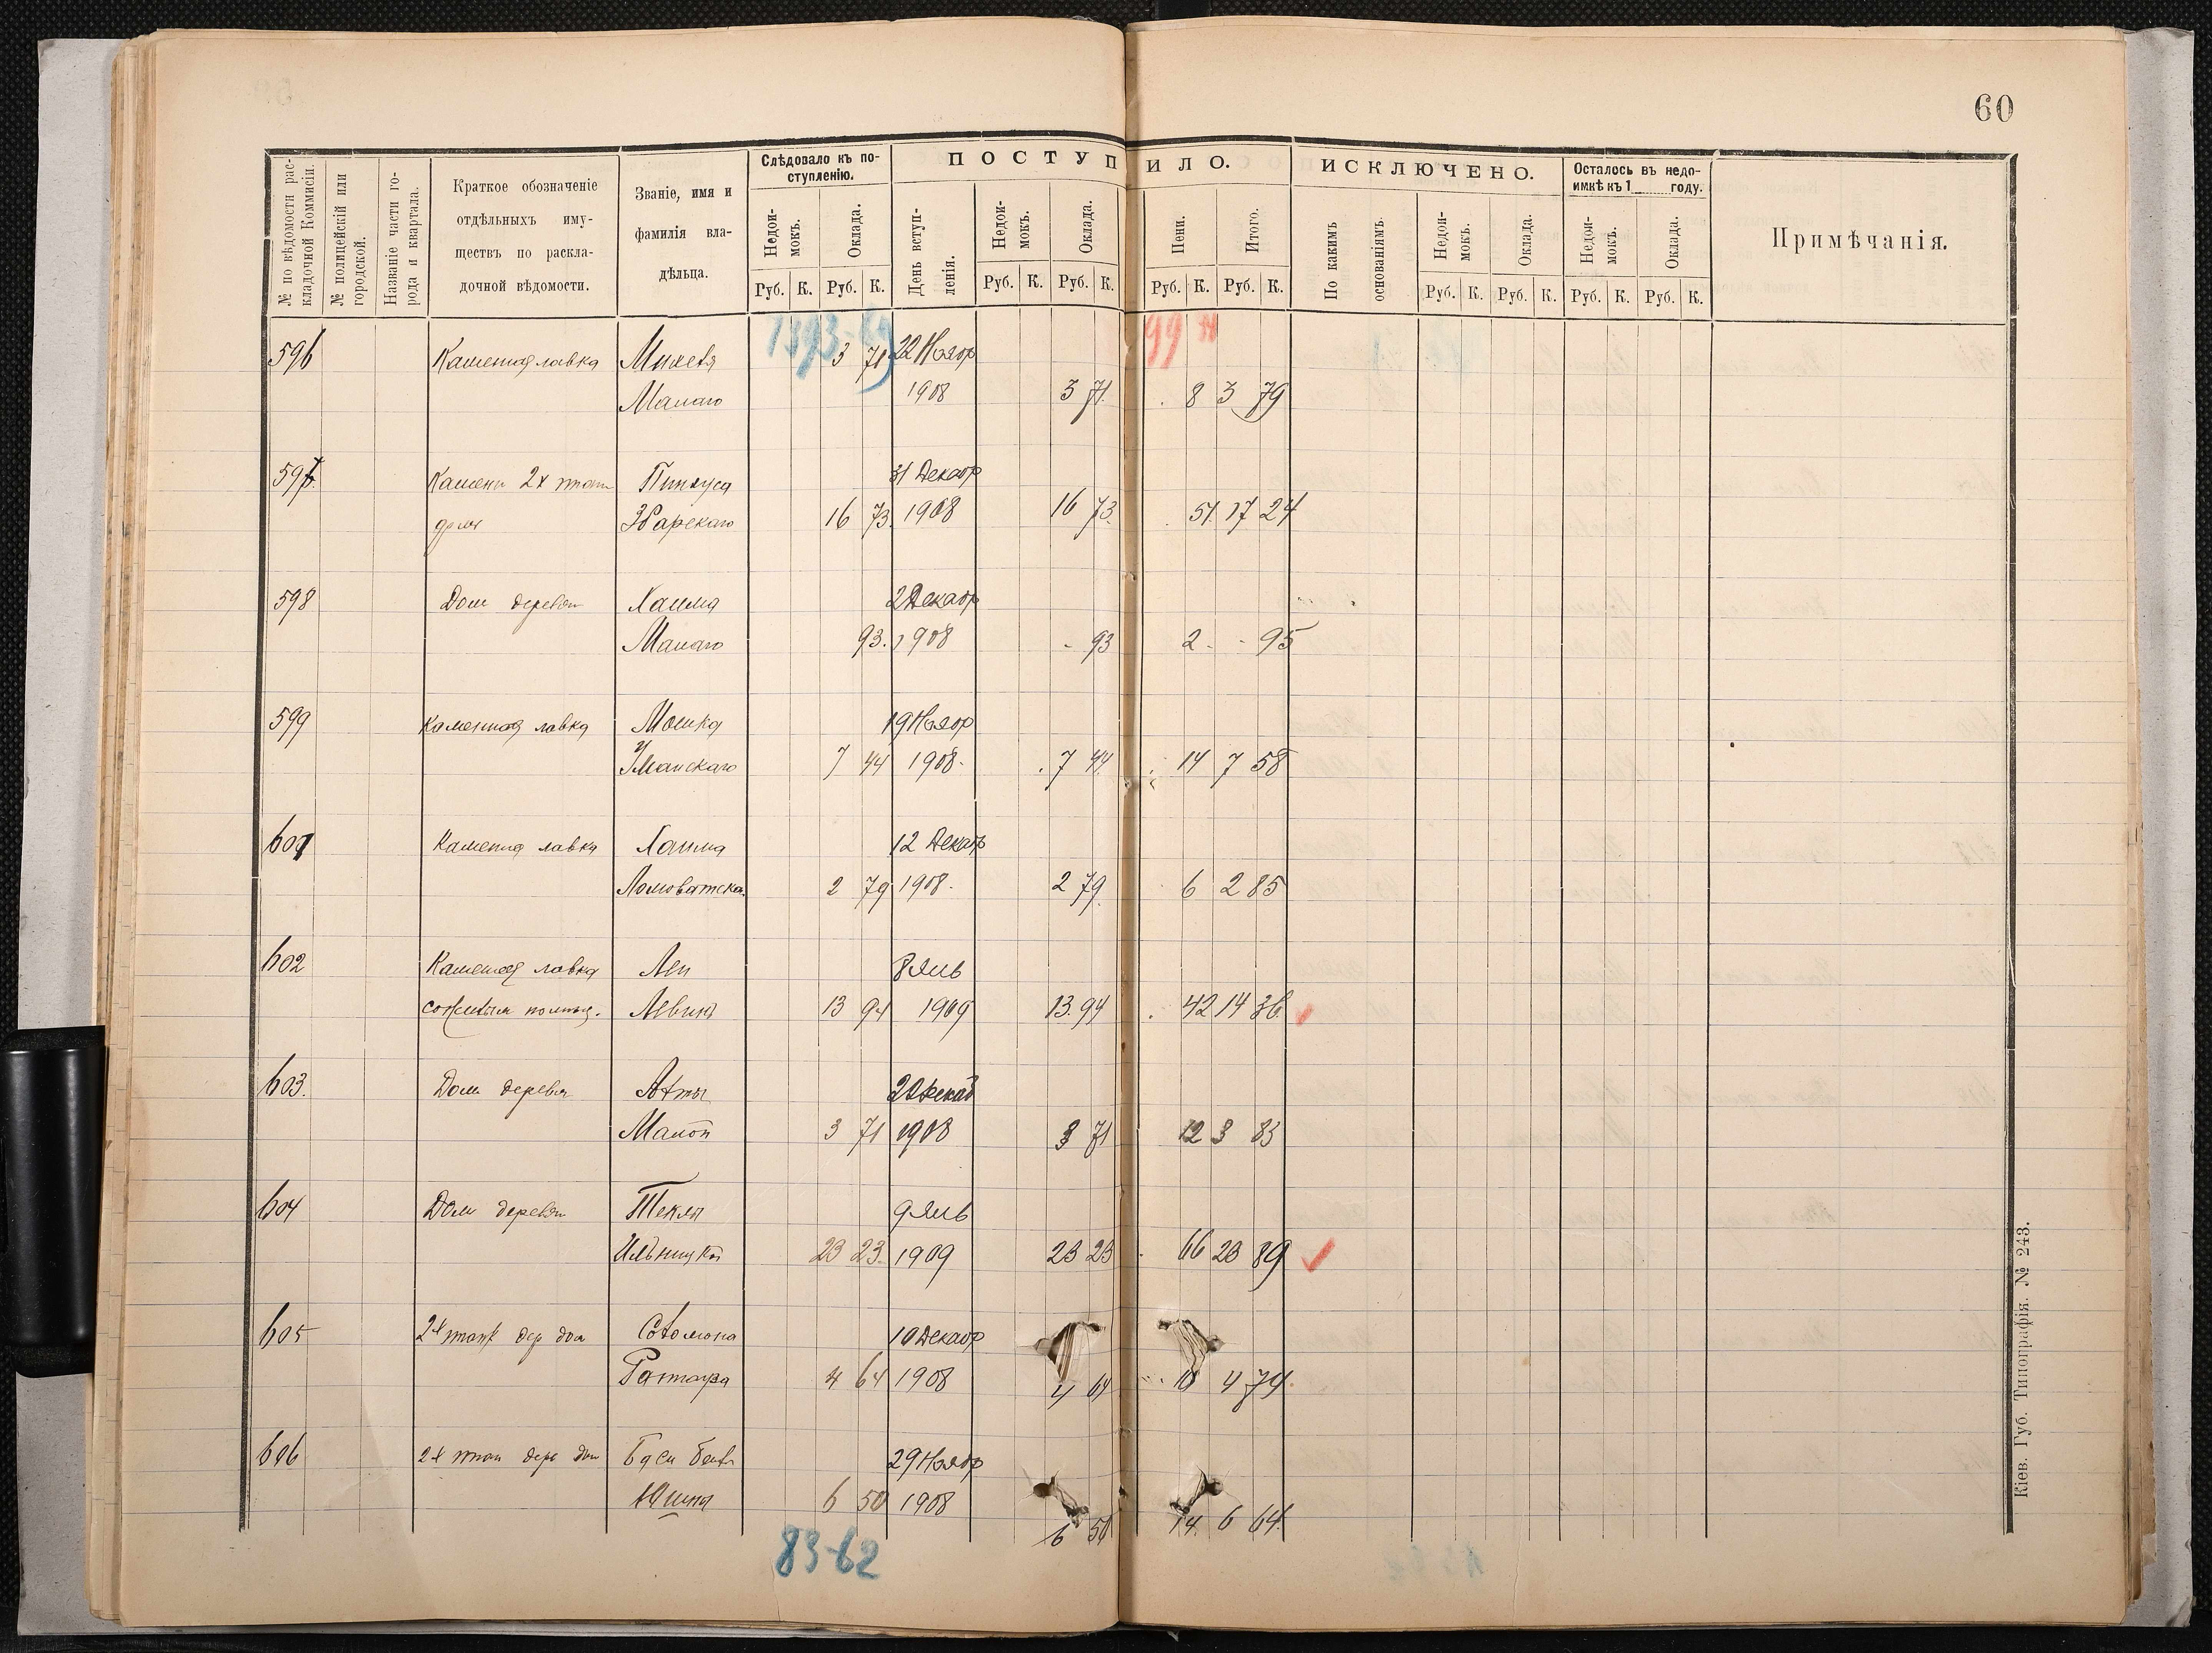 60
№ по вѣдомости рас-
кладочной Коммисіи.
№ полицейскій или
городской.
Названіе части го-
рода и квартала.
Краткое обозначеніе
отдѣльныхъ иму-
ществъ по раскла-
дочной вѣдомости.
Званіе, имя и
фамилія вла-
дѣльца.
Слѣдовало къ по-
ступленію.
Недои-
мокъ.
Оклада.
Руб. К. Руб. К.
ПОСТУПИЛО.
День вступ-
ленія.
Недои-
мокъ.
Оклада.
Пени.
Итого.
Руб. К. Руб. К. Руб. К. Руб. К.
ИСКЛЮЧЕНО.
По какимъ
основаніямъ.
Недои-
мокъ.
Оклада.
Руб. К. Руб. К.
Осталось въ недо-
имкѣ къ 1 году.
Недои-
мокъ.
Оклада.
Руб. К. Руб. К.
Примѣчанія.
99
596 Каменная лавка 3 71 22 Ноябр
Малаго 1908 3 71 8 3 79
597 Камени 2х этаж Пинхуса 31 Декабр
домъ Збарскаго 16 73 1908 16 73 51 17 24
598 Домъ деревян Хаима 2 Декабр
Малаго 93 1908 - 93 2 - 95
599 Каменная лавка Мошка 19 Ноябр
Уманскаго 7 44 1908 7 44 14 7 58
601 Каменна лавка Хаима 12 Декаб
Ломоватска 2 79 1908 2 79 6 2 85
602 Каменная лавка Леи 8 Янв
Левинъ 13 94 1909 13 94 42 14 36
603. Домъ деревян Декаб
Малой 3 71 1908 3 71 12 3 83
604 Домъ деревян Текли 9 Янв
Ильницкой 23 23 1909 23 23 66 23 89
605 2х этаж дер дом Соломона 10 Декабр
4 64 1908 4 64 10 4 74
606 2х этаж дере дом 29 Ноябр
6 50 1908 6 50 14 6 64
83-62
Кіев. Губ. Типографія. № 243.